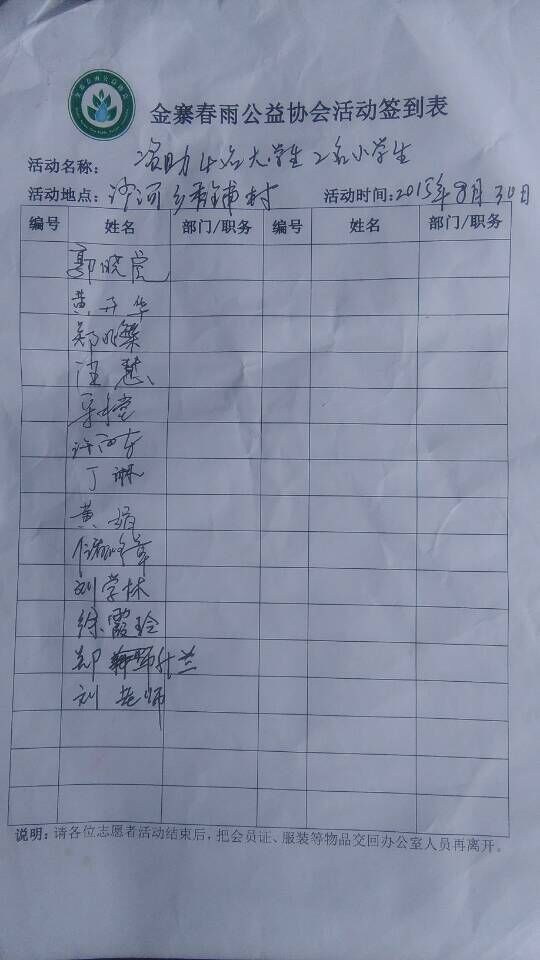 金寨春雨公益协会活动签到表
活动名称：资助4名大学生2名小学生
活动地点：沙河乡 铺村 活动时间:2015年8月30日
编号 姓名 部门/职务 编号 姓名 部门/职务
郭晓莹
黄开华
郑
汪慧
许
丁琳
黄娟
储
刘学林
徐霞玲
郑
刘老师
说明：请各位志愿者活动结束后，把会员证、服装等物品交回办公室人员再离开。